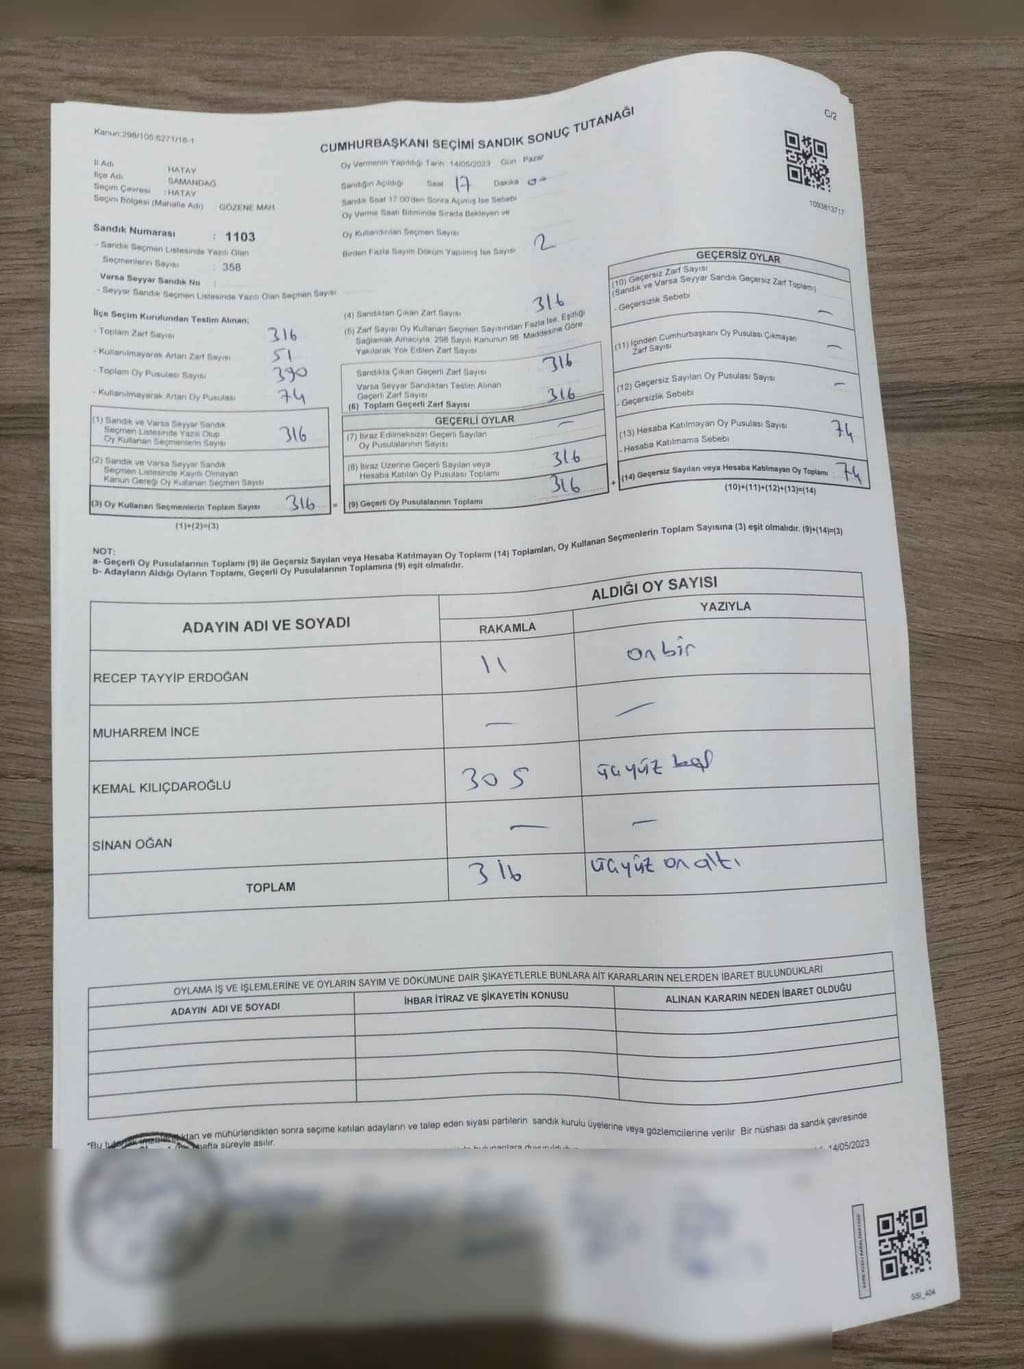 Kanun:298/105,6271/16-1
C/2
CUMHURBAŞKANI SEÇİMİ SANDIK SONUÇ TUTANAĞI
1093813717
İl Adı HATAY
İlçe Adı SAMANDAĞ
Seçim Çevresi : HATAY
Seçim Bölgesi (Mahalle Adı) GÖZENE MAH.
Sandık Numarası : 1103
- Sandık Seçmen Listesinde Yazılı Olan
Seçmenlerin Sayısı : 358
Varsa Seyyar Sandık No
- Seyyar Sandık Seçmen Listesinde Yazılı Olan Seçmen Sayısı
Oy Vermenin Yapıldığı Tarih : 14/05/2023 Gün : Pazar
Sandığın Açıldığı Saat 17 Dakika 0-
Sandık Saat 17:00'den Sonra Açılmış İse Sebebi
Oy Verme Saati Bitiminde Sırada Bekleyen ve
Oy Kullandırılan Seçmen Sayısı
Birden Fazla Sayım Döküm Yapılmış İse Sayısı 2
İlçe Seçim Kurulundan Teslim Alınan:
- Toplam Zarf Sayısı 316
- Kullanılmayarak Artan Zarf Sayısı 51
- Toplam Oy Pusulası Sayısı 390
- Kullanılmayarak Artan Oy Pusulası 74
(1) Sandık ve Varsa Seyyar Sandık
Seçmen Listesinde Yazılı Olup
Oy Kullanan Seçmenlerin Sayısı 316
(2) Sandık ve Varsa Seyyar Sandık
Seçmen Listesinde Kayıtlı Olmayan
Kanun Gereği Oy Kullanan Seçmen Sayısı
(3) Oy Kullanan Seçmenlerin Toplam Sayısı 316
(1)+(2)=(3)
(4) Sandıktan Çıkan Zarf Sayısı 316
(5) Zarf Sayısı Oy Kullanan Seçmen Sayısından Fazla İse, Eşitliği
Sağlamak Amacıyla, 298 Sayılı Kanunun 98. Maddesine Göre
Yakılarak Yok Edilen Zarf Sayısı
Sandıkta Çıkan Geçerli Zarf Sayısı 316
Varsa Seyyar Sandıktan Teslim Alınan
Geçerli Zarf Sayısı
(6) Toplam Geçerli Zarf Sayısı 316
GEÇERLİ OYLAR
(7) İtiraz Edilmeksizin Geçerli Sayılan
Oy Pusulalarının Sayısı —
(8) İtiraz Üzerine Geçerli Sayılan veya
Hesaba Katılan Oy Pusulası Toplamı 316
= (9) Geçerli Oy Pusulalarının Toplamı 316 +
GEÇERSİZ OYLAR
(10) Geçersiz Zarf Sayısı
(Sandık ve Varsa Seyyar Sandık Geçersiz Zarf Toplamı)
- Geçersizlik Sebebi —
(11) İçinden Cumhurbaşkanı Oy Pusulası Çıkmayan
Zarf Sayısı —
(12) Geçersiz Sayılan Oy Pusulası Sayısı —
- Geçersizlik Sebebi
(13) Hesaba Katılmayan Oy Pusulası Sayısı 74
- Hesaba Katılmama Sebebi
(14) Geçersiz Sayılan veya Hesaba Katılmayan Oy Toplamı 74
(10)+(11)+(12)+(13)=(14)
NOT:
a- Geçerli Oy Pusulalarının Toplamı (9) ile Geçersiz Sayılan veya Hesaba Katılmayan Oy Toplamı (14) Toplamları, Oy Kullanan Seçmenlerin Toplam Sayısına (3) eşit olmalıdır. (9)+(14)=(3)
b- Adayların Aldığı Oyların Toplamı, Geçerli Oy Pusulalarının Toplamına (9) eşit olmalıdır.
ADAYIN ADI VE SOYADI
ALDIĞI OY SAYISI
RAKAMLA YAZIYLA
RECEP TAYYİP ERDOĞAN 11 on bir
MUHARREM İNCE — —
KEMAL KILIÇDAROĞLU 305 üçyüz beş
SİNAN OĞAN — —
TOPLAM 316 üçyüz on altı
OYLAMA İŞ VE İŞLEMLERİNE VE OYLARIN SAYIM VE DÖKÜMÜNE DAİR ŞİKAYETLERLE BUNLARA AİT KARARLARIN NELERDEN İBARET BULUNDUKLARI
ADAYIN ADI VE SOYADI İHBAR İTİRAZ VE ŞİKAYETİN KONUSU ALINAN KARARIN NEDEN İBARET OLDUĞU
*Bu ve mühürlendikten sonra seçime katılan adayların ve talep eden siyasi partilerin sandık kurulu üyelerine veya gözlemcilerine verilir. Bir nüshası da sandık çevresinde
hafta süreyle asılır.
14/05/2023
GSI_404